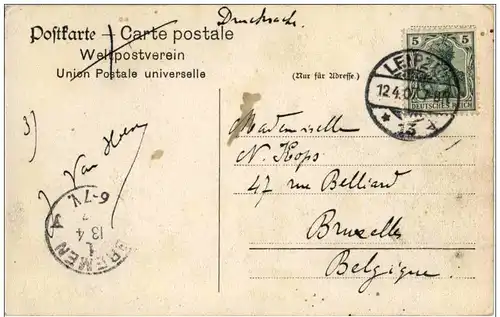 Drucksache.
Postkarte — Carte postale
Weltpostverein
Union Postale universelle
(Nur für Adresse.)
5 5
DEUTSCHES REICH
LEIPZIG
12.4.07.
13
3)
Mademoiselle
N. Kops
47 rue Belliard
Bruxelles
Belgique.
6-7V.
13 4
1
BREMEN